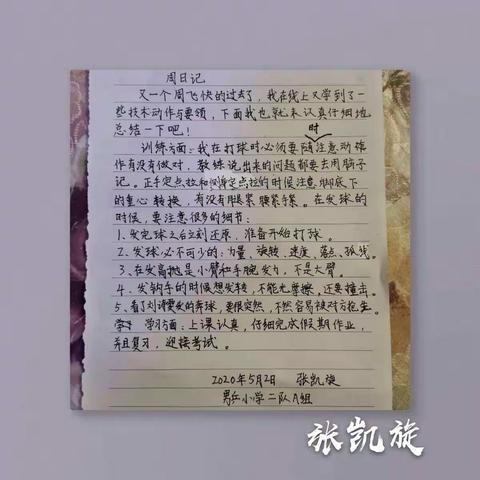 周日记
又一个周飞快的过去了，我在线上又学到了一
些技术动作与要领，下面我也就来认真仔细地
总结一下吧！
训练方面：我在打球时必须要随时注意动作
作有没有做对，教练说出来的问题都要去用脑子
记。正手定点拉和侧身定点拉的时候注意脚底下
的重心转换，有没有腿紧腰紧手紧。在发球的
时候，要注意很多的细节：
1、发完球之后立刻还原，准备开始打球。
2、发球必不可少的：力量、旋转、速度、落点、弧线。
3、在发高抛是小臂和手腕发力，不是大臂。
4、发钩子的时候想发转，不能光摩擦，还要撞击。
5、看了刘诗雯发的奔球，要很突然，不然容易被对方抢先
学习方面：上课认真，仔细完成假期作业，
并且复习，迎接考试。
2020年5月2日 张凯旋
男乒小学二队A组
张凯旋